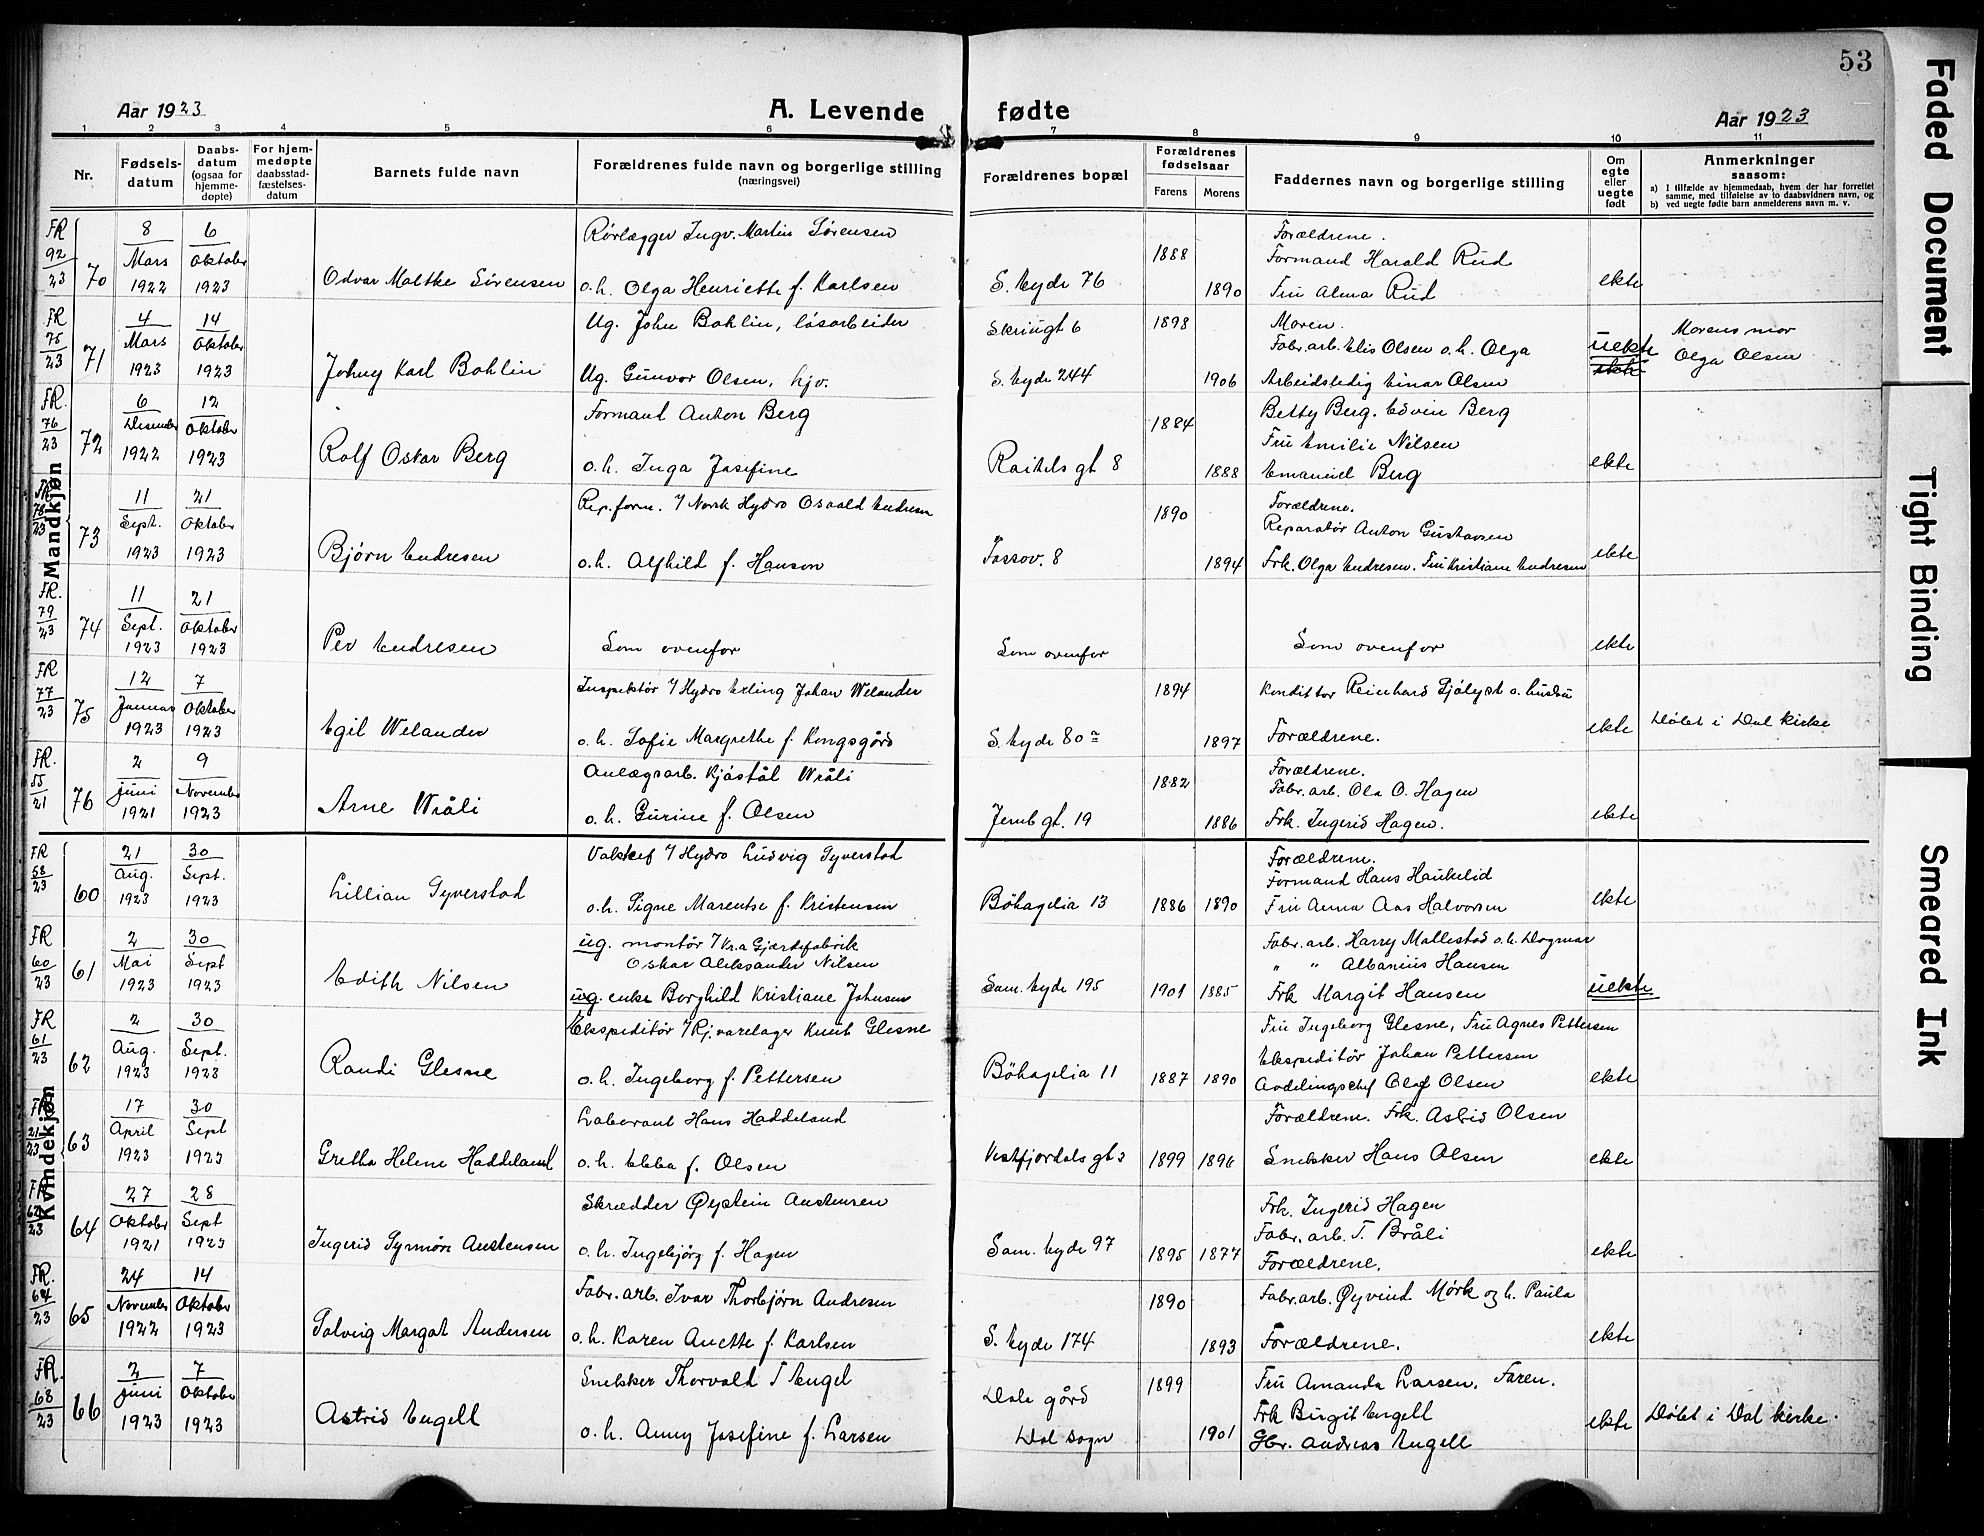 53
Aar 1923
A. Levende fødte
Aar 1923
1 2 3 4 5 6 7 8 9 10 11
Nr.
Fødsels-
datum
Daabs-
datum
(ogsaa for
hjemme-
døpte)
For hjem-
medøpte
daabsstad-
fæstelses-
datum
Barnets fulde navn
Forældrenes fulde navn og borgerlige stilling
(næringsvei)
Forældrenes bopæl
Forældrenes
fødselsaar
Farens
Morens
Faddernes navn og borgerlige stilling
Om
egte
eller
uegte
født
Anmerkninger
saasom:
a) I tilfælde av hjemmedaab, hvem der har forrettet
samme, med tilføielse av to daabsvidners navn, og
b) ved uegte fødte barn anmelderens navn m. v.
Mandkjøn
FR 92/23 70
8 Mars 1922
6 Oktober 1923
Odvar Moltke Sørensen
Rørlægger Ingv. Martin Sørensen
o.h. Olga Henriette f. Karlsen
S. Eyde 76
1888 1890
Forældrene.
Formand Harald Rud
Fru Alma Rud
ekte
FR 75/23 71
4 Mars 1923
14 Oktober 1923
Johny Karl Bohlin
Ug. John Bohlin, løsarbeider
Ug. Gunvor Olsen, hjv.
Skriugt 6
S. Eyde 244
1898 1906
Moren.
Fabr. arb. Elis Olsen o.h. Olga
Arbeidsledig Einar Olsen
uekte
ekte
Morens mor
Olga Olsen
FR. 76/23 72
6 Desember 1922
12 Oktober 1923
Rolf Oskar Berg
Formand Anton Berg
o.h. Inga Josefine
Raihels gt 8
1884 1888
Betty Berg. Edvin Berg
Fru Emilie Nilsen
Emanuel Berg
ekte
FR. 78/23 73
11 Sept. 1923
21 Oktober 1923
Bjørn Endresen
Rep. form. v/ Norsk Hydro Osvald Endresen
o.h. Alfhild f. Hanson
Fossov. 8
1890 1894
Forældrene.
Reparatør Anton Gustavsen
Frk. Olga Endresen. Fru Kristiane Endresen
ekte
FR. 79/23 74
11 Sept. 1923
21 Oktober 1923
Per Endresen
Som ovenfor
Som ovenfor
Som ovenfor
ekte
FR 77/23 75
12 Januar 1923
7 Oktober 1923
Egil Welander
Inspektør v/ Hydro Erling Johan Welander
o.h. Sofie Margrethe f. Kongsgård
S. Eyde 80 a
1894 1897
Konditor Reinhard Sjølyst o. hustru
Forældrene.
ekte
Døbt i Dal kirke
FR. 55/21 76
2 juni 1921
9 November 1923
Arne Wråli
Anlægsarb. Kjåstål Wråli
o.h. Gurine f. Olsen
Jernb gt. 19
1882 1886
Forældrene.
Fabr. arb. Ola O. Hagen
Frk. Ingerid Hagen.
ekte
Kvindekjøn
FR 58/23 60
21 Aug. 1923
30 Sept. 1923
Lillian Syverstad
Vaktchef v/ Hydro Ludvig Syverstad
o.h. Signe Marentse f. Kristensen
Bøhagelia 13
1886 1890
Forældrene.
Formand Hans Haukelid
Fru Anna Aas Halvorsen
ekte
FR 60/23 61
2 Mai 1923
30 Sept 1923
Edith Nilsen
ug. montør v/ Kr.a Gjærdefabrik
Oskar Aleksander Nilsen
ug. enke Borghild Kristiane Johnsen
Sam. Eyde 195
1901 1885
Fabr. arb. Harry Mollestad o.h. Dagmar
" " Albanius Hansen
Frk Margit Hansen
uekte
FR 61/23 62
2 Aug. 1923
30 Sept. 1923
Randi Glesne
Ekspeditør v/ Rj. varelager Knut Glesne
o.h. Ingeborg f. Pettersen
Bøhagelia 11
1887 1890
Fru Ingeborg Glesne, Fru Agnes Pettersen
Ekspeditør Johan Pettersen
Avdelingschef Olaf Olsen
ekte
FR. 21/23 63
17 April 1923
30 Sept 1923
Gretha Helene Haddeland
Laborant Hans Haddeland
o.h. Ebba f. Olsen
Vestfjordals gt 2
1899 1896
Forældrene. Frk. Astrid Olsen
Snekker Hans Olsen
ekte
FR. 62/23 64
27 Oktober 1921
28 Sept 1923
Ingerid Synnøve Austensen
Skrædder Øystein Austensen
o.h. Ingebjørg f. Hagen
Sam. Eyde 97
1895 1877
Frk. Ingerid Hagen
Fabr. arb. T. Bråli
Forældrene.
ekte
FR. 64/23 65
24 November 1922
14 Oktober 1923
Solveig Margot Andersen
Fabr. arb. Ivar Thorbjørn Andresen
o.h. Karen Anette f. Karlsen
S. Eyde 174
1890 1893
Fabr. arb. Øyvind Mørk og h. Paula
Forældrene.
ekte
FR. 68/23 66
2 juni 1923
7 Oktober 1923
Astrid Engell
Snekker Thorvald T Engel
o.h. Anny Josefine f. Larsen
Dale gård
Dal sogn
1899 1901
Fru Amanda Larsen. Faren.
Frk Birgit Engell
Gbr. Andreas Engell
ekte
Døbt i Dal kirke.
Faded Document
Tight Binding
Smeared Ink